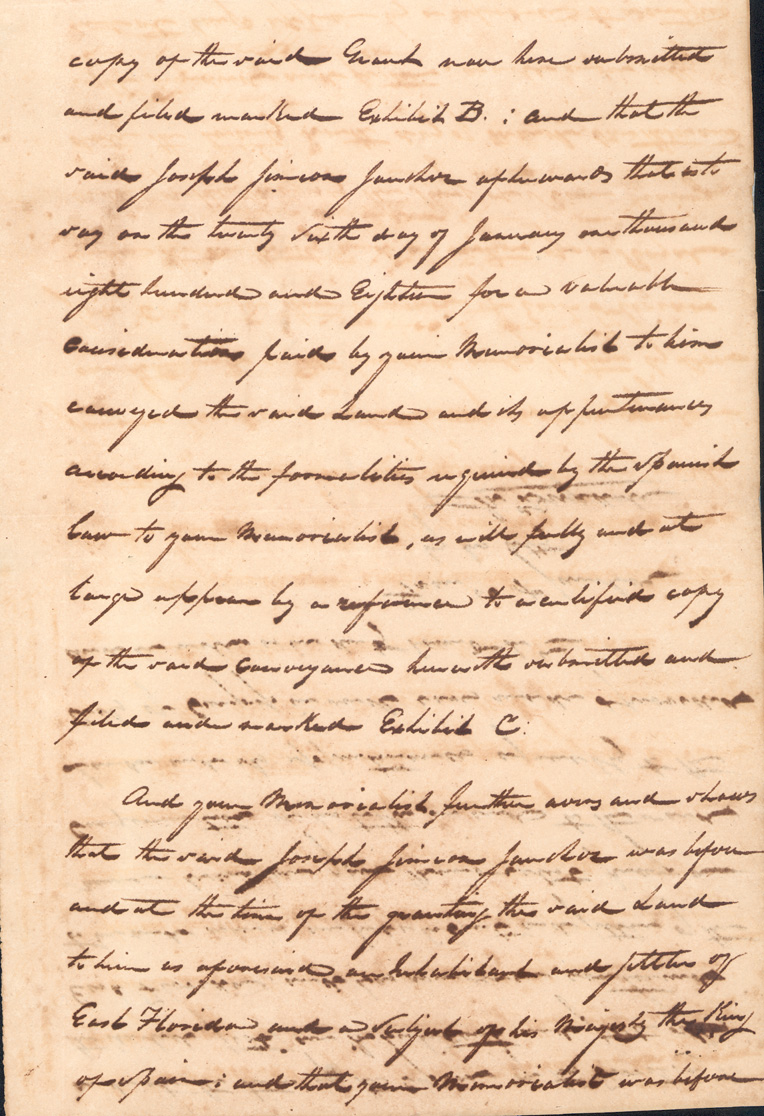 copy of the said Grant now here submitted
and filed marked Exhibit B. : and that the
said Joseph Simeon Sanchez afterwards that is to
say on the twenty sixth day of January one thousand
eight hundred and Eighteen for a valuable
Consideration paid by your Memorialist to him
conveyed the said Land and its appurtenances
according to the formalities required by the Spanish
Law to your Memorialist, as will fully and at
large appear by a reference to a certified copy
of the said Conveyance herewith submitted and
filed and marked Exhibit C.
And your Memorialist further avers and shows
that the said Joseph Simeon Sanchez was before
and at the time of the granting the said Land
to him as aforesaid an Inhabitant and settler of
East Florida and a Subject of his Majesty the King
of Spain : and that your Memorialist was before